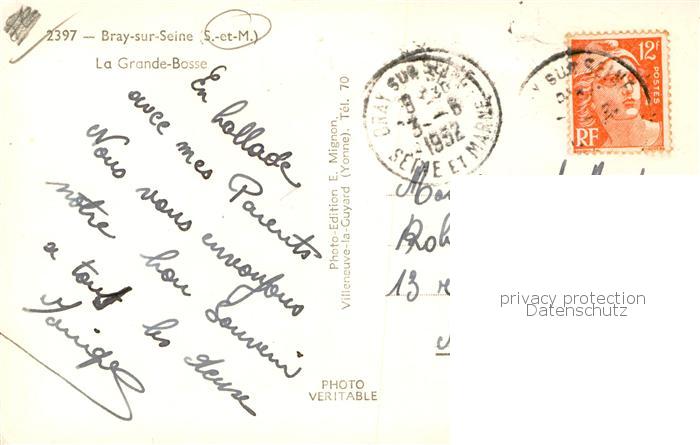 2397 — Bray-sur-Seine (S.-et-M.)
La Grande-Bosse
En ballade
avec mes Parents
Nous vous envoyons
notre bon Souvenir
a tous les deux
Photo-Edition E. Mignon
Villeneuve-la-Guyard (Yonne). Tél. 70
PHOTO
VERITABLE
BRAY SUR SEINE
1952
SEINE ET MARNE
12F
POSTES
RF
13
privacy protection
Datenschutz